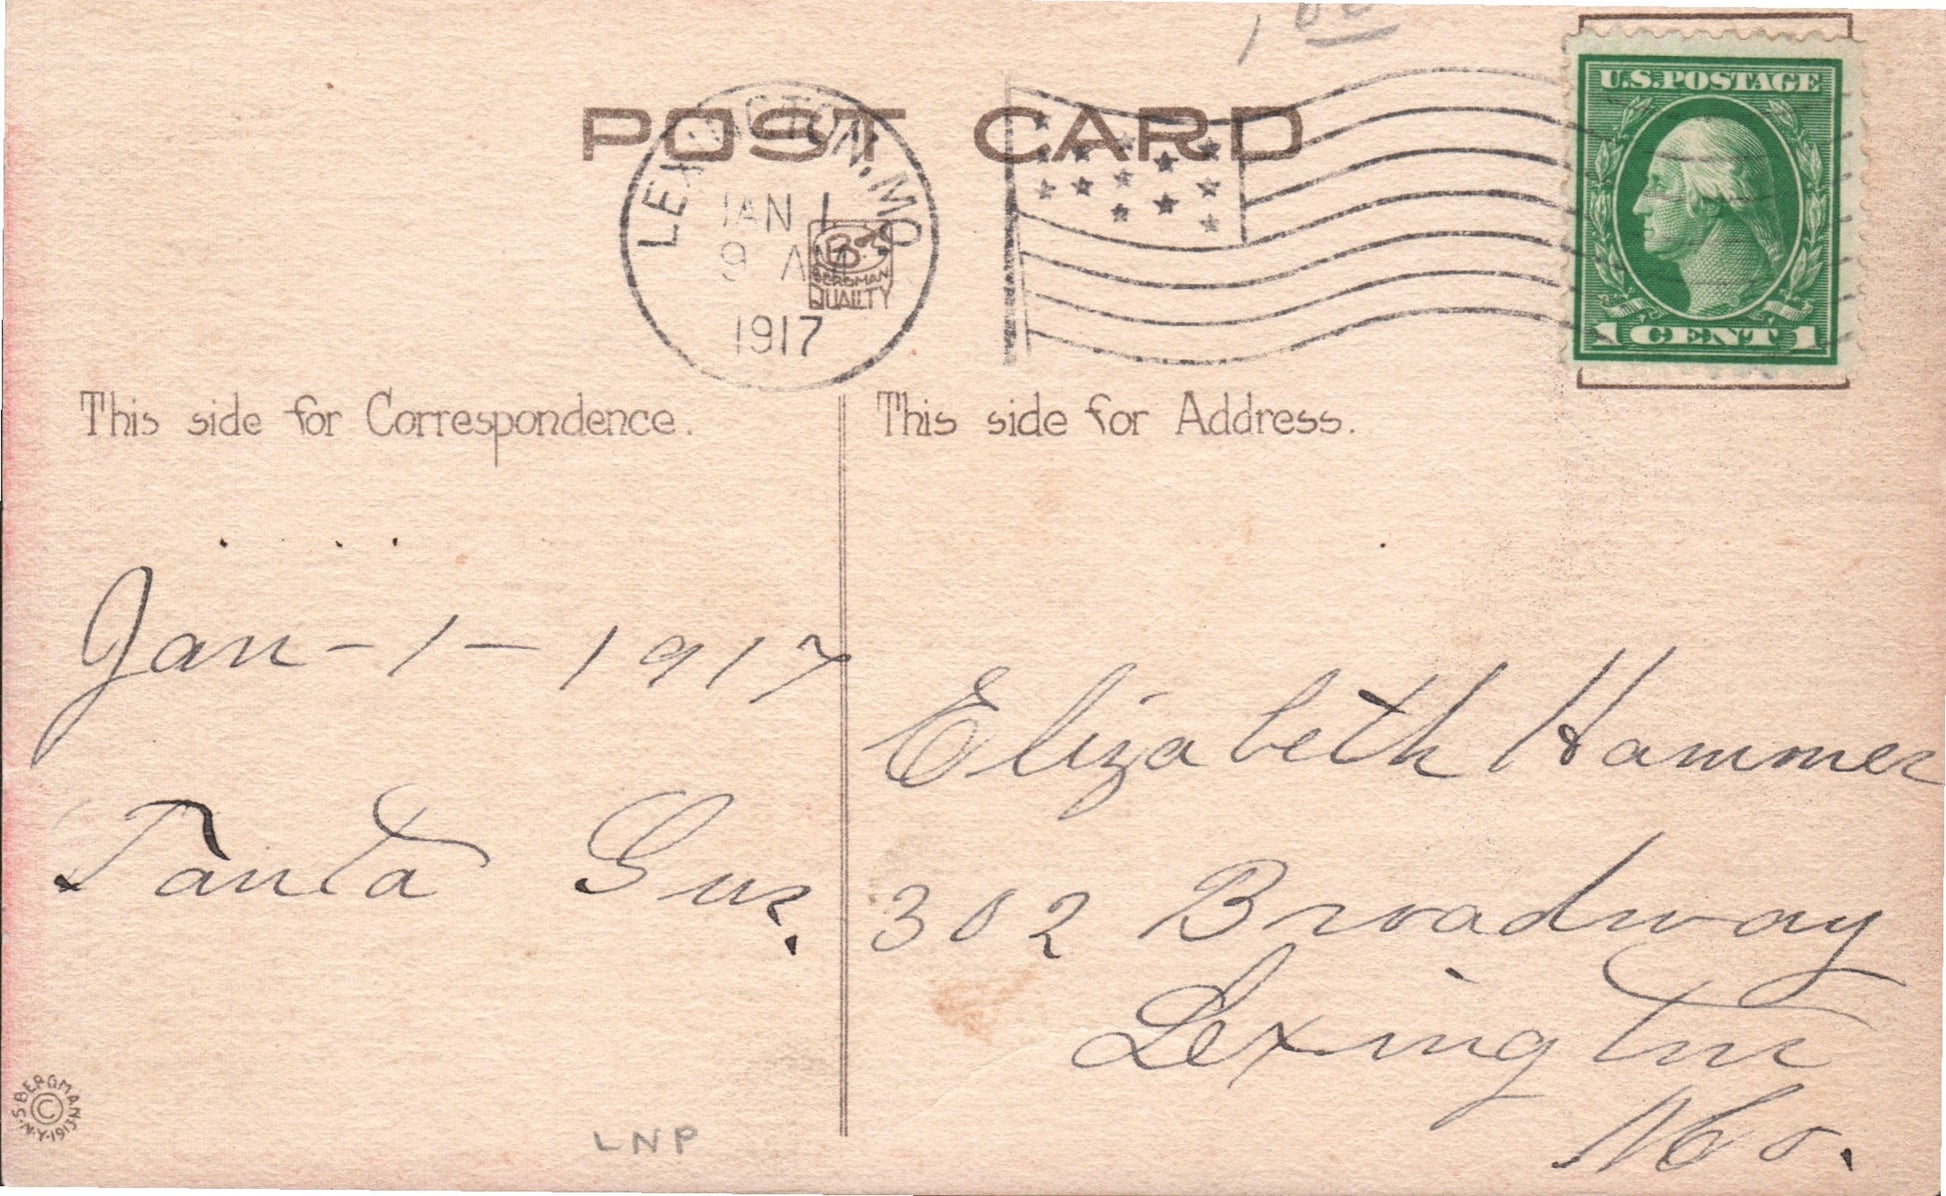 1.00
POST CARD
LEXINGTON, MO.
JAN 1
9 AM
1917
BERGMAN
QUALITY
U.S. POSTAGE
1 CENT 1
This side for Correspondence.
This side for Address.
Jan - 1 - 1917
Elizabeth Hammer
Tanta Gus.
302 Broadway
Lexington
Mo.
S. BERGMAN N.Y. 1915 ©
LNP